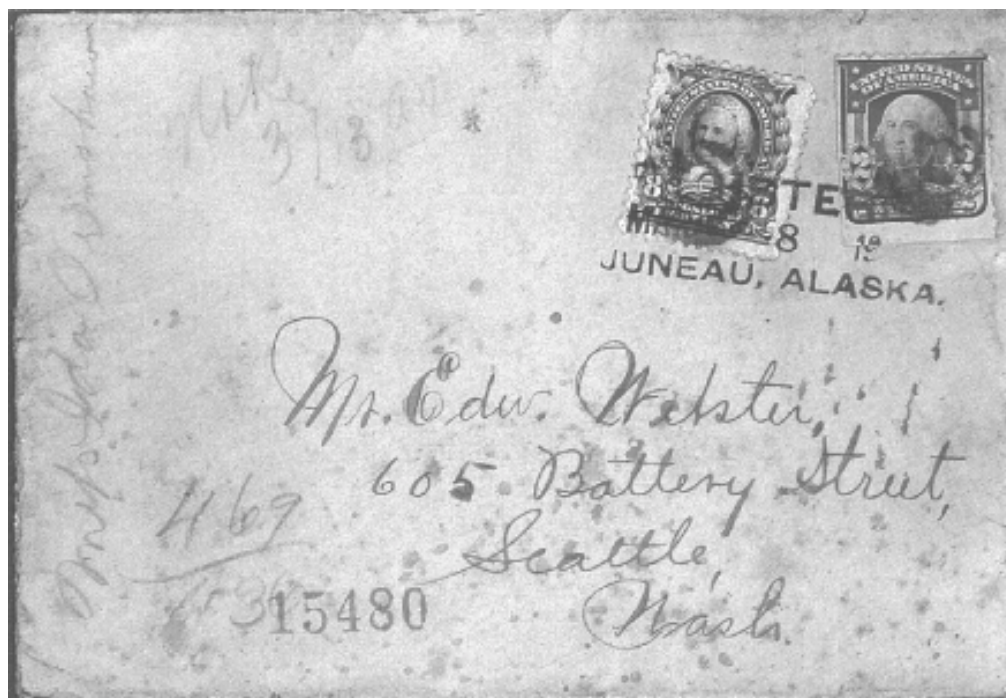 3/13
UNITED STATES
OF AMERICA
8
8
JUNEAU, ALASKA.
Mr. Edw. Webster,
605 Battery Street,
Seattle,
Wash.
469
15480
Mrs. Ida